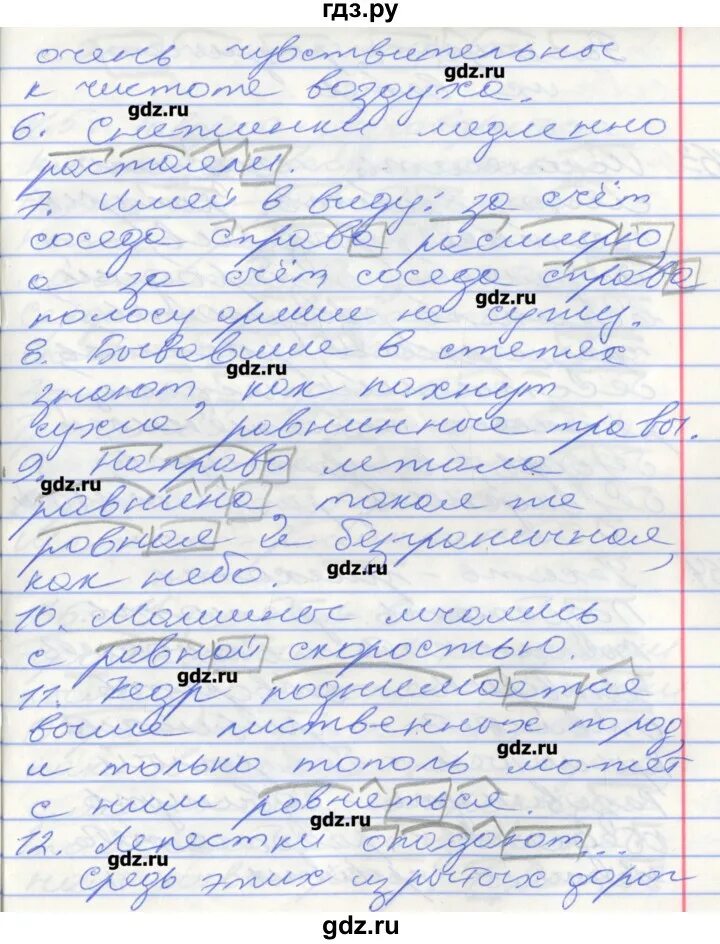 гдз.ру
очень чувствительны
gdz.ru
к чистоте воздуха.
gdz.ru
6. Снежинки медленно
растаяли.
gdz.ru
7. Имей в виду: за счёт
соседа справа расширю,
а за счёт соседа справа
gdz.ru
полосу армие не сужу.
8. Бывавшие в степях
gdz.ru
знают, как пахнут
сухие, равнинные травы.
9. Направо лежала
gdz.ru
равнина, такая же
ровная и безграничная,
как небо.
gdz.ru
10. Машины мчались
с равной скоростью.
gdz.ru
11. Кедр поднимается
выше лиственных пород,
gdz.ru
и только тополь может
с ним ровняться.
gdz.ru
12. Лепестки опадают...
gdz.ru
Средь этих изрытых дорог
gdz.ru